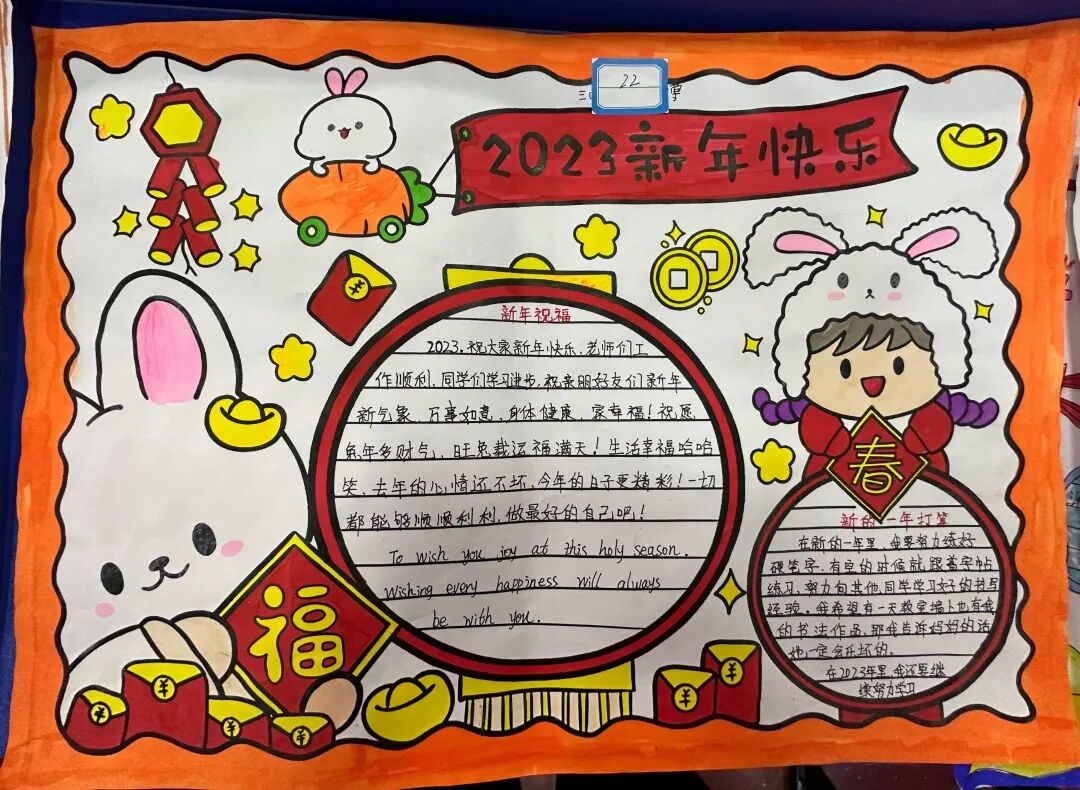 22
2023新年快乐
新年祝福
2023.祝大家新年快乐、老师们工
作顺利、同学们学习进步,祝亲朋好友们新年
新气象、万事如意、身体健康、家幸福!祝愿
兔年多财气,旺兔载运福满天!生活幸福哈哈
笑、去年的心情还不坏、今年的日子更精彩!一切
都能够顺顺利利,做最好的自己吧!
To wish you joy at this holy season.
Wishing every happiness will always
be with you.
春
新的一年打算
在新的一年里,我要努力练好
硬笔字,有空的时候就跟着字帖
练习,努力向其他同学学习好的书写
经验。我希望有一天教室墙上也有我
的书法作品,那我告诉妈妈的话
她一定会乐坏的。
在2023年里,我还要继
续努力学习
福